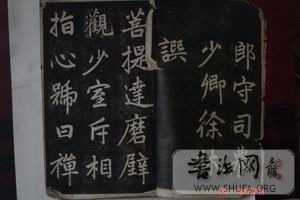 郎守司農
少卿徐
譔
菩提達磨壁
觀少室斥相
指心號曰禪
书法网
WWW.SHUFA.ORG